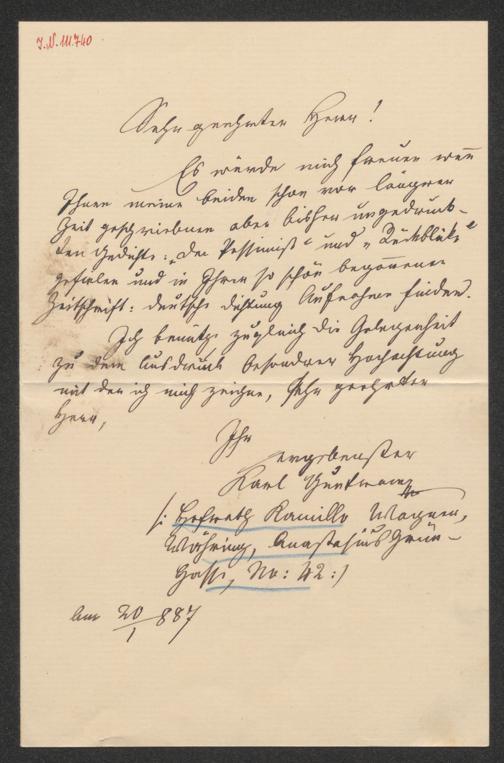 J.N. 111.740
Sehr geehrter Herr!
Es würde mich freuen wen̄
Ihnen meine beiden schon vor längerer
Zeit geschriebnen aber bisher ungedruck-
ten Gedichte: „Der Pessimist“ und „Rückblicke“
gefielen und in Ihrer so schön begon̄enen
Zeitschrift: deutsche Dichtung Aufnahme finden.
Ich benütze zugleich die Gelegenheit
zu dem Ausdruck besondrer Hochachtung
mit der ich mich zeichne, sehr geehrter
Herr,
Ihr
ergebenster
Karl
/: Hofrath Kamillo Wagner,
Währing, Anastasius Grün-
Gasse, No: 42 :/
Am 20/1 887